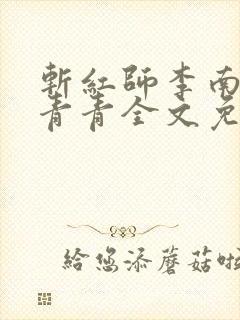 斬紅師李南
青青全文免
給您添蘑菇啦